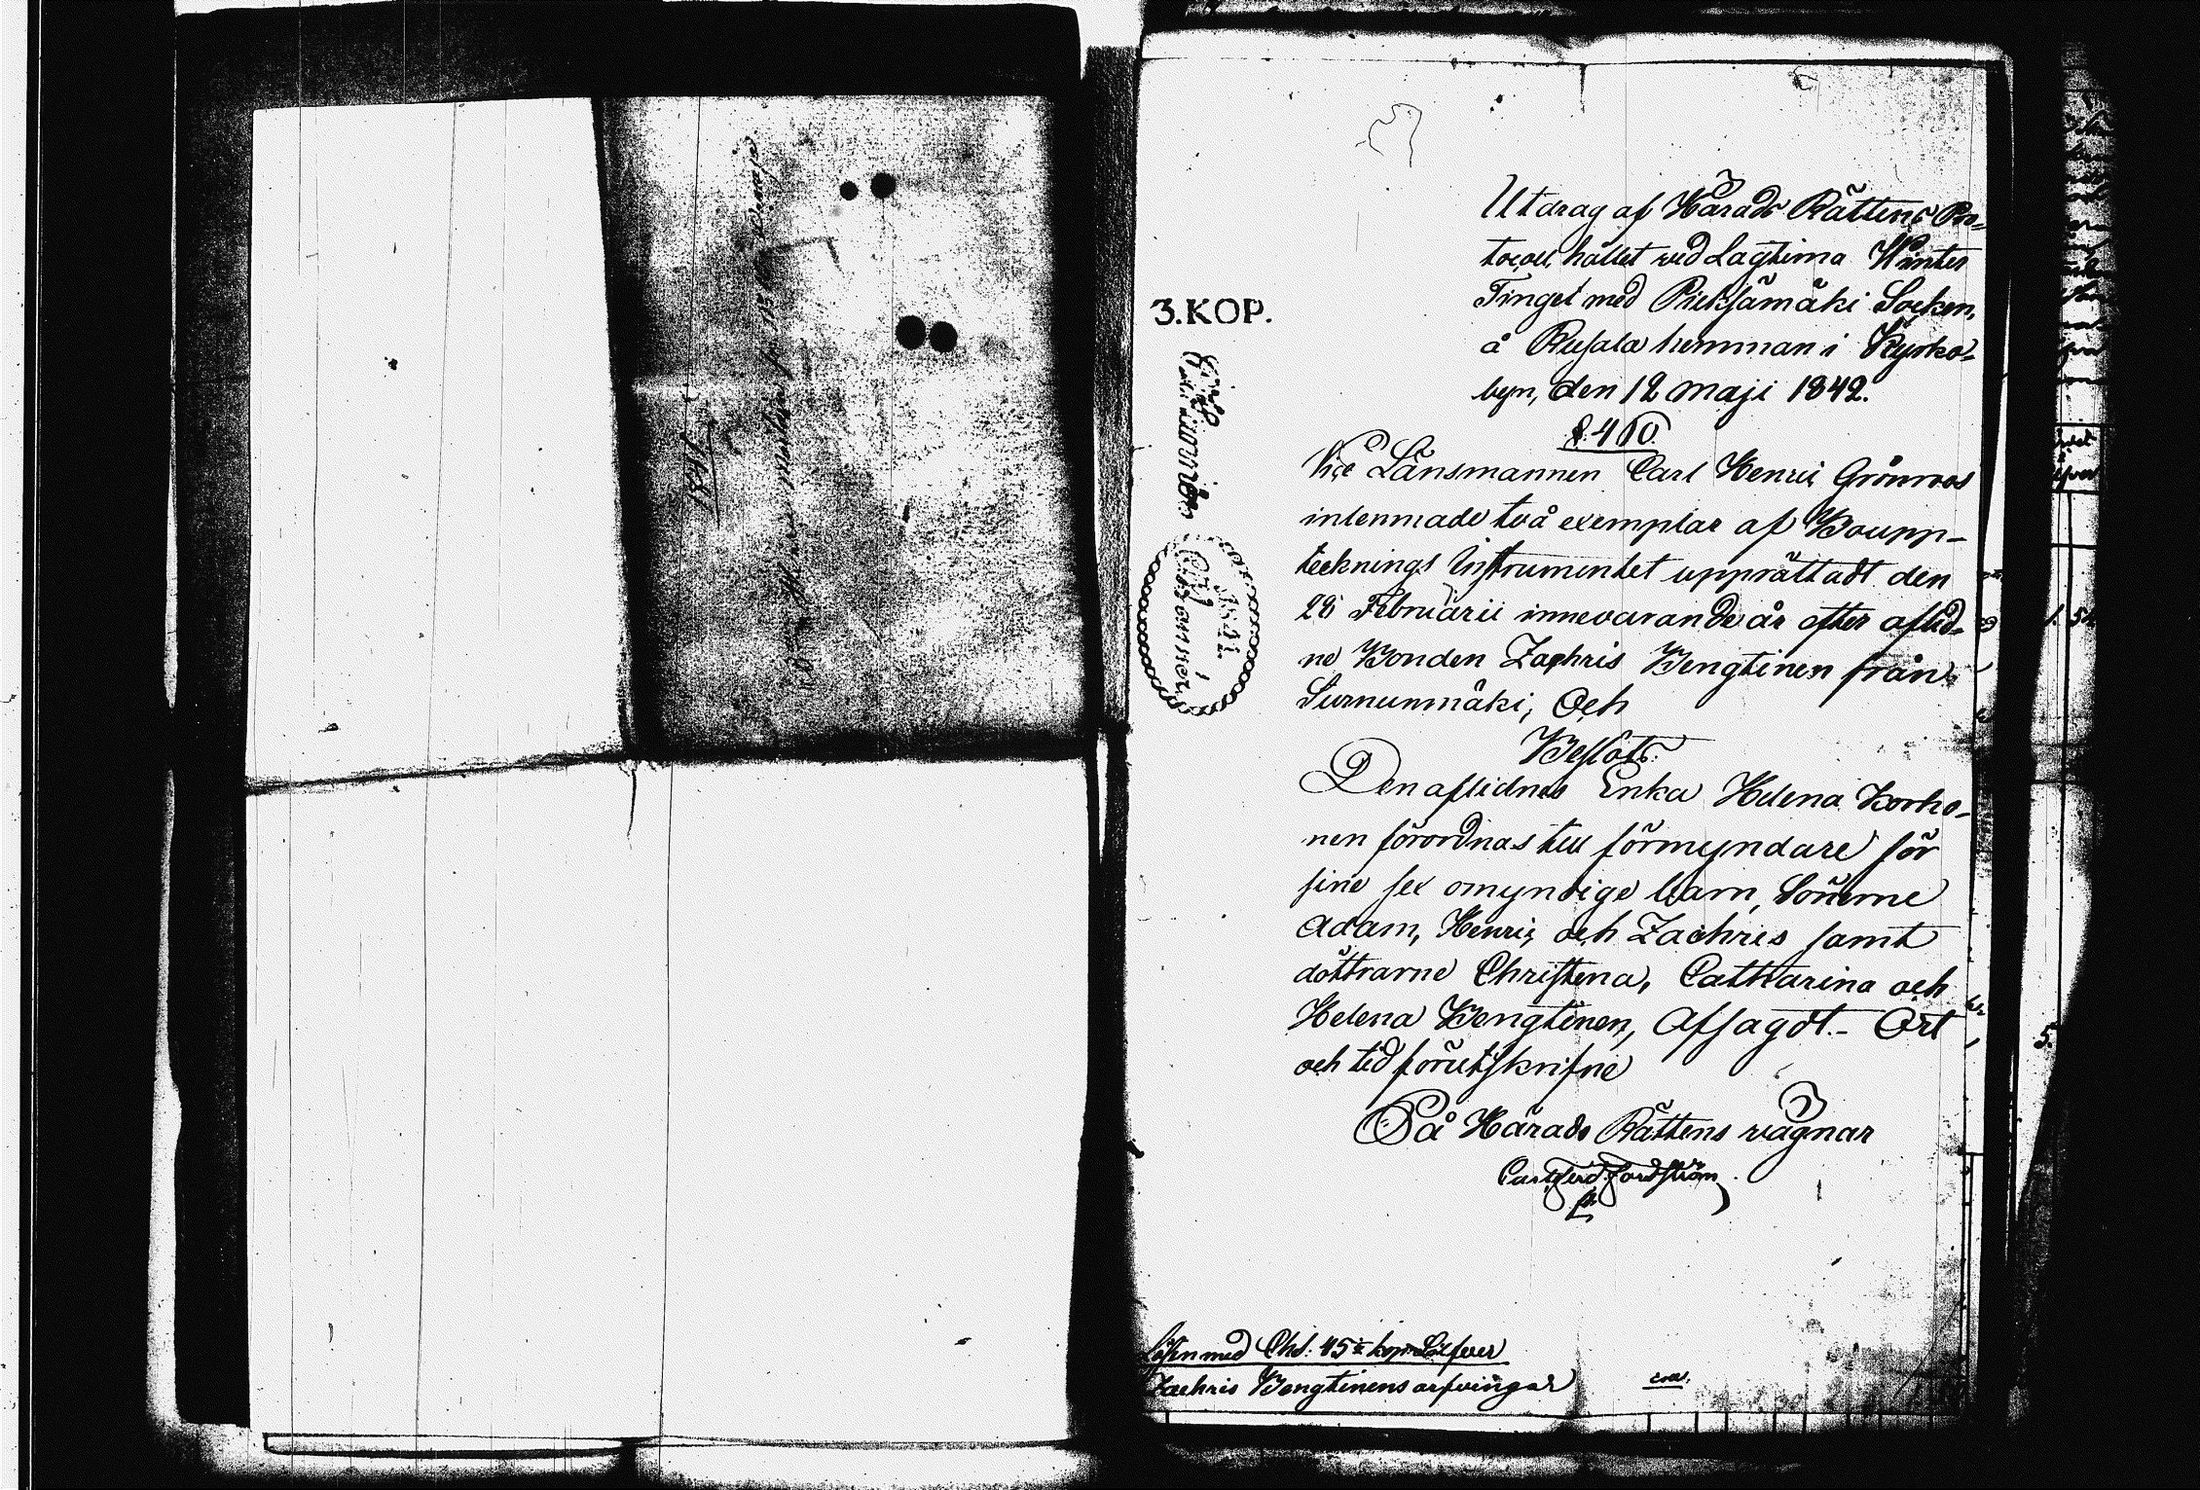 1841
3.KOP.
1841.
Utdrag af Härads Rättens Pro-
tocoll, hållet vid Lagtima Winter
Tinget med Pieksämäki Socken,
å Rusala hemman i Kyrko-
byn, den 12 Maji 1842.
§. 460.
Vice Länsmannen Carl Henric Grönroos
inlemnade två exemplar af Boupp-
tecknings Instrumentet upprättadt den
28 Februarii innevarande år efter aflid-
ne Bonden Zachris Bengtinen från
Surnunmäki, Och
Beslöts:
Den aflidnes Enka Helena Korho-
nen förordnas till förmyndare för
sine sex omyndige barn, Sönerne
Adam, Henric, och Zachris samt
döttrarne Christina, Catharina och
Helena Bengtinen, Afsagdt. - Ort
och tid förutskrifne
På Härads Rättens vägnar
Carl Ferd. Forsström.
Lösen med Chs: 45 kop. Silfver
Zachris Bengtinens arfvingar